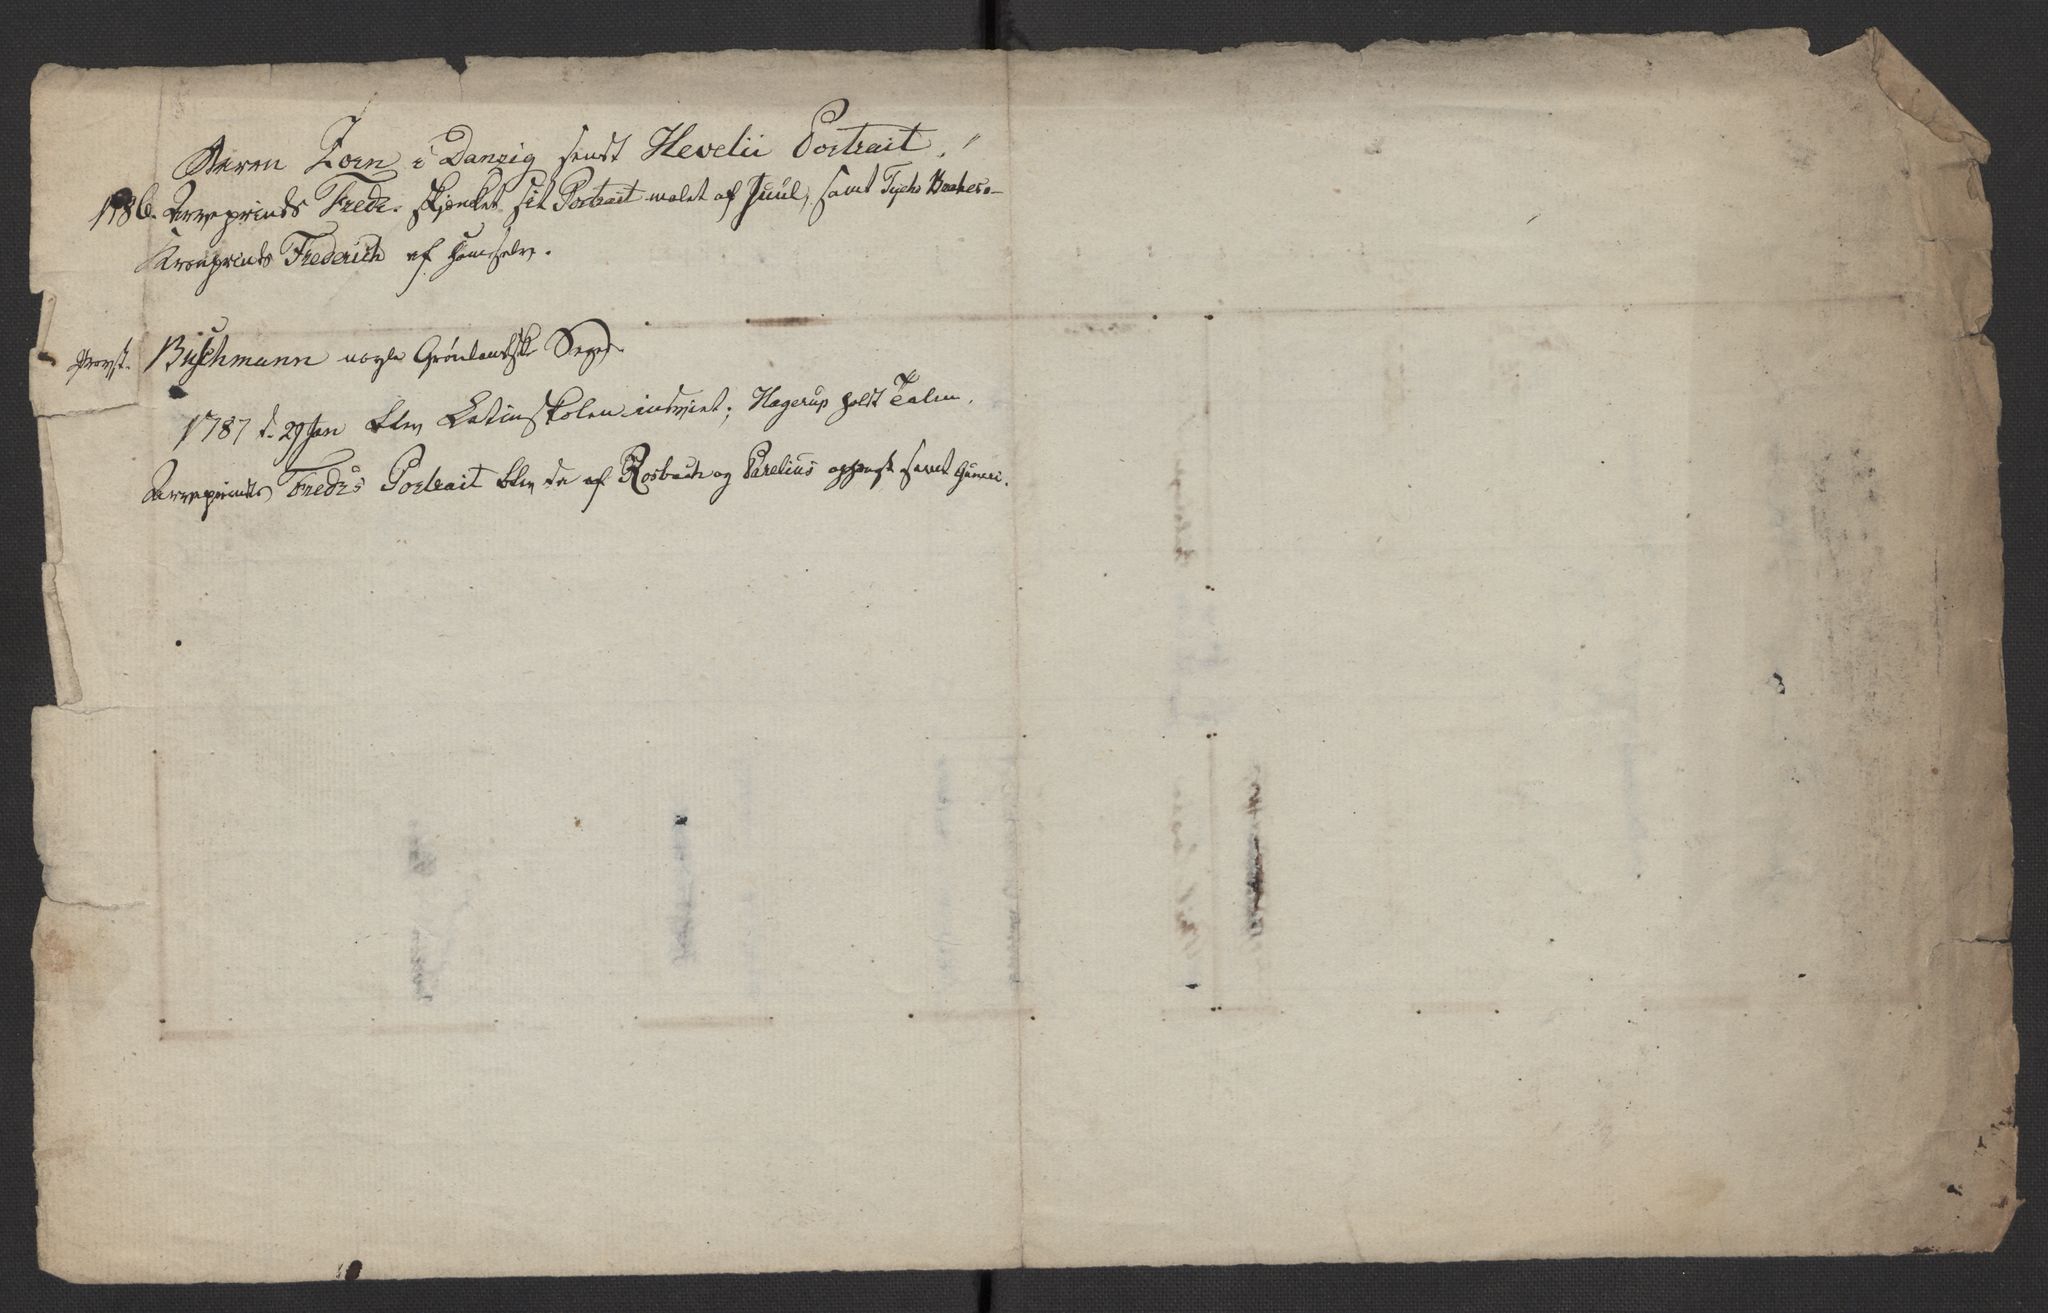 Herrn Zorn i Danzig sendt Hevelii Portrait.
1786. Arveprinds Fredr. skjenket sit Portrait malet af Juul, samt Tycho Brahes
Kronprinds Frederich af ham selv.
Provst. Buschmann nogle Grönlandske
1787 d. 29 Jan blev Latinskolen indviet; Hagerup holdt Talen.
Arveprinds Fredrs Portrait blev da af Rosbach og Parelius ophengt samt Guneri.